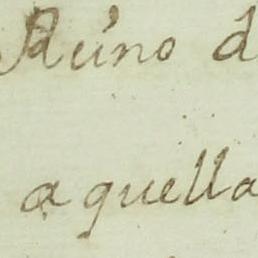 Rúno d
aquella